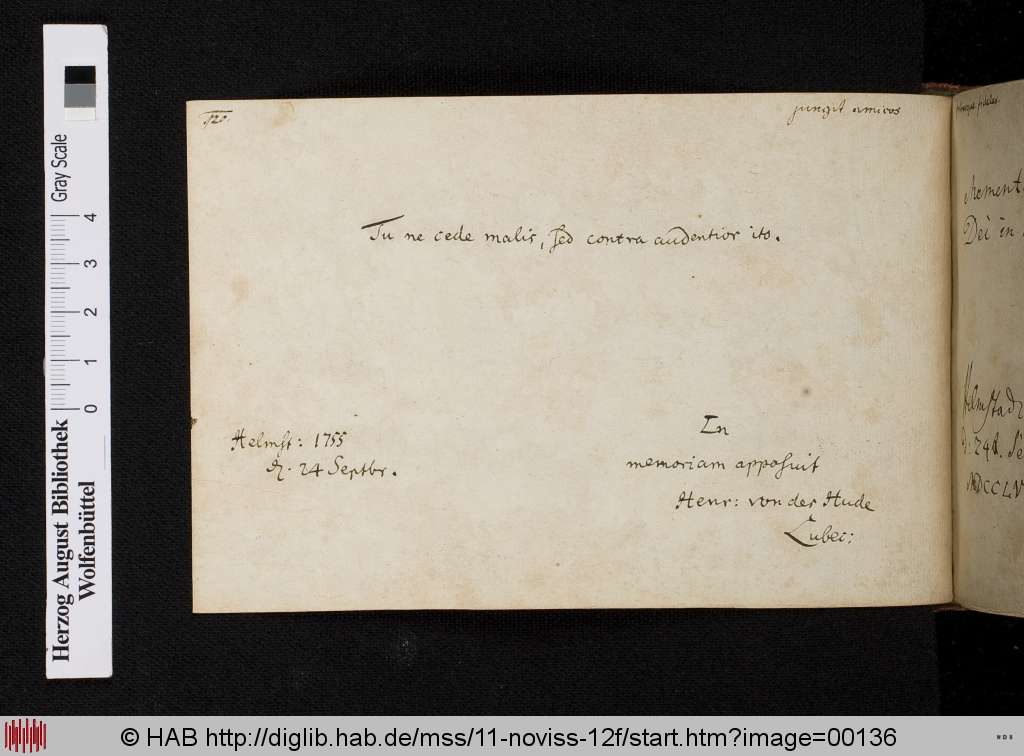 120.
jungit amicos
Tu ne cede malis, sed contra audentior ito.
Helmst: 1755
d. 24 Septbr.
In
memoriam apposuit
Henr: von der Hude
Lubec:
fideles
Dei in
MDCCLV
Gray Scale
0 1 2 3 4
Herzog August Bibliothek
Wolfenbüttel
© HAB http://diglib.hab.de/mss/11-noviss-12f/start.htm?image=00136